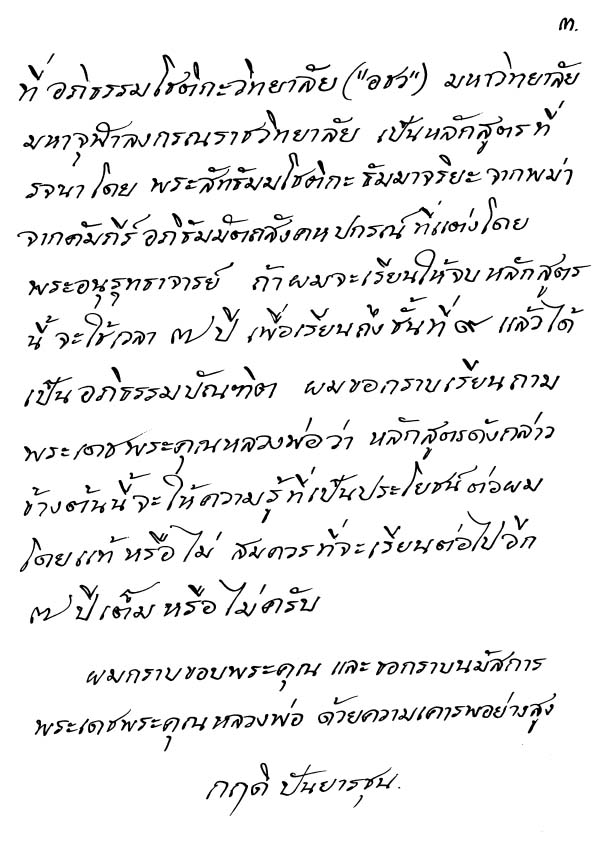 ๓.
ที่ อภิธรรมโชติกะวิทยาลัย ("อชว") มหาวิทยาลัย
มหาจุฬาลงกรณราชวิทยาลัย เป็นหลักสูตรที่
รจนาโดย พระสัทธัมมโชติกะ ธัมมาจริยะ จากพม่า
จากคัมภีร์ อภิธัมมัตถสังคหปกรณ์ ที่แต่งโดย
พระอนุรุทธาจารย์ ถ้าผมจะเรียนให้จบหลักสูตร
นี้ จะใช้เวลา ๗ ปี เพื่อเรียนถึงชั้นที่ ๙ แล้วได้
เป็น อภิธรรมบัณฑิต ผมขอกราบเรียนถาม
พระเดชพระคุณหลวงพ่อว่า หลักสูตรดังกล่าว
ข้างต้นนี้ จะให้ความรู้ที่เป็นประโยชน์ต่อผม
โดยแท้ หรือไม่ สมควรที่จะเรียนต่อไปอีก
๗ ปีเต็ม หรือไม่ครับ
ผมกราบขอบพระคุณ และขอกราบนมัสการ
พระเดชพระคุณหลวงพ่อ ด้วยความเคารพอย่างสูง
กฤดิ ปันยารชุน.